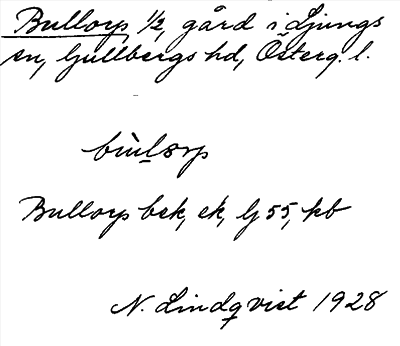 Bullorp 1/2, gård i Ljungs
sn, Gullbergs hd, Österg. l.
bùlǝrp
Bullorp bek, ek, Gj 55, kb
N. Lindqvist 1928